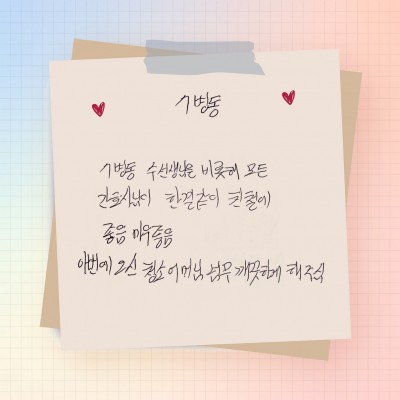 7병동
7병동 수선생님을 비롯해 모든
간호사님이 한결같이 친절에
좋음 매우좋음
이번에 오신 청소어머님 너무 깨끗하게 해주심